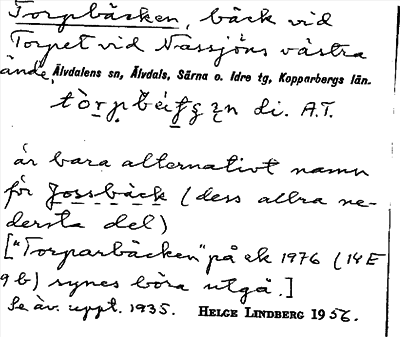 Torpbäcken, bäck vid
Torpet vid Nässjöns västra
ände, Älvdalens sn, Älvdals, Särna o. Idre tg, Kopparbergs län.
di. A.T.
är bara alternativt namn
för Jossbäck (dess allra ne-
dersta del)
["Torparbäcken" på ek 1976 (14E
9b) synes böra utgå.]
Se äv. uppt. 1935. HELGE LINDBERG 1956.